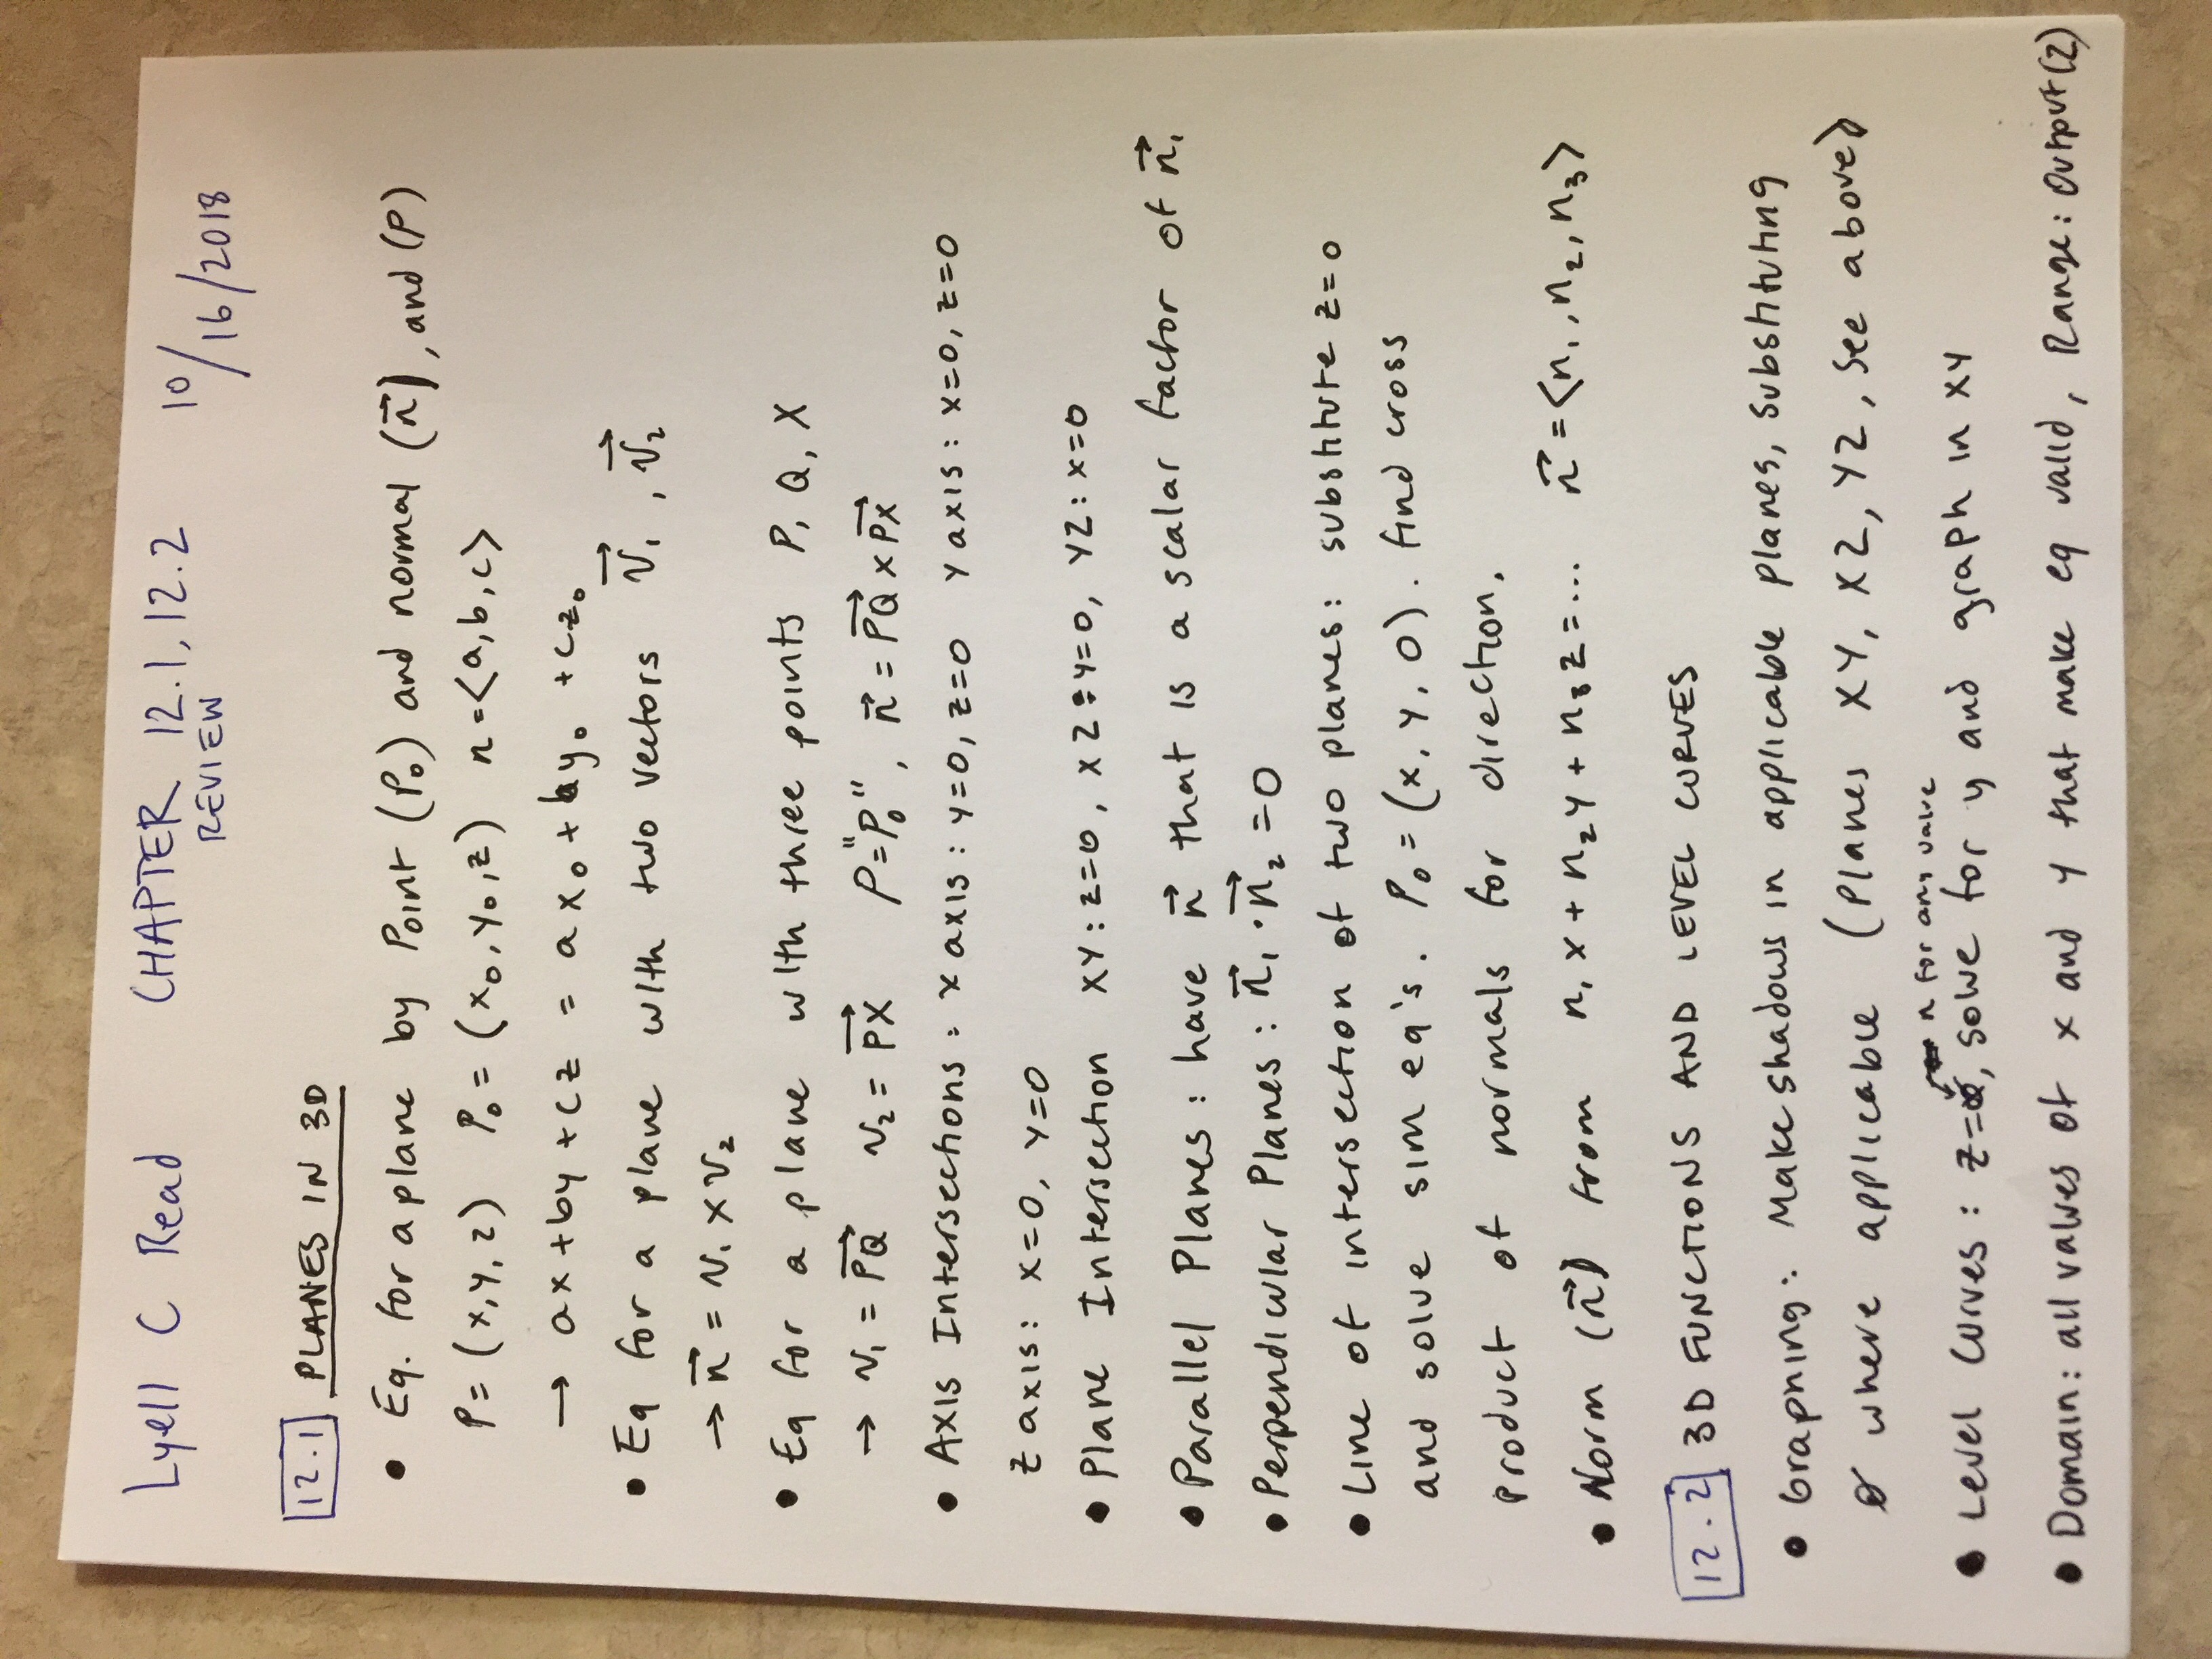 Lyell C Read CHAPTER 12.1, 12.2 10/16/2018
REVIEW
12.1 PLANES IN 3D
• Eq. for a plane by Point (P₀) and normal (n⃗), and (P)
P = (x, y, z) P₀ = (x₀, y₀, z) n = <a, b, c>
→ ax + by + cz = ax₀ + by₀ + cz₀
• Eq for a plane with two vectors V⃗₁, V⃗₂
→ n⃗ = V₁ × V₂
• Eq for a plane with three points P, Q, X
→ V₁ = P͞Q⃗ V₂ = P͞X⃗ P = "P₀", n⃗ = P͞Q⃗ × P͞X⃗
• Axis Intersections: x axis: y=0, z=0 Y axis: x=0, z=0
Z axis: x=0, y=0
• Plane Intersection XY: z=0, XZ: y=0, YZ: x=0
• Parallel Planes: have n⃗ that is a scalar factor of n⃗₁
• Perpendicular Planes: n⃗₁ · n⃗₂ = 0
• Line of intersection of two planes: substitute z=0
and solve sim eq's. P₀ = (x, y, 0). find cross
product of normals for direction.
• Norm (n⃗) from n₁x + n₂y + n₃z = ... n⃗ = <n₁, n₂, n₃>
12.2 3D FUNCTIONS AND LEVEL CURVES
• Graphing: Make shadows in applicable planes, substituting
0 where applicable (Planes XY, XZ, YZ, see above)
n for any value
• Level Curves: z= , solve for y and graph in XY
• Domain: all values of x and y that make eq valid, Range: Output (z)